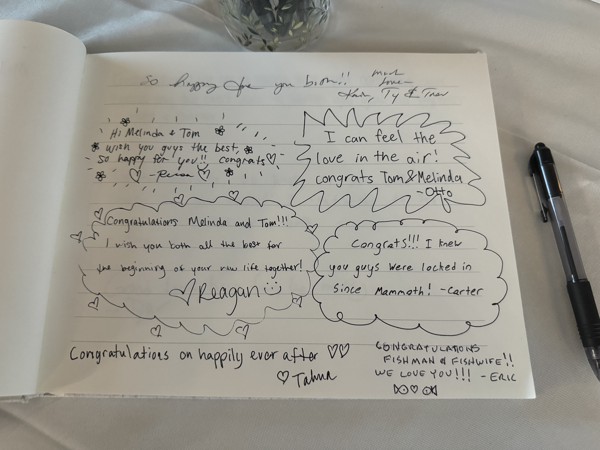 So happy for you both!!
much
love
Ty & Trev
Hi Melinda & Tom
wish you guys the best,
So happy for you!! congrats♡
♡ -
I can feel the
love in the air!
congrats Tom&Melinda
-Otto
Congratulations Melinda and Tom!!!
I wish you both all the best for
the beginning of your new life together!
♡Reagan☺
Congrats!!! I knew
you guys were locked in
since Mammoth! -Carter
Congratulations on happily ever after ♡♡
♡
CONGRATULATIONS
FISHMAN & FISHWIFE!!
WE LOVE YOU!!! -ERIC